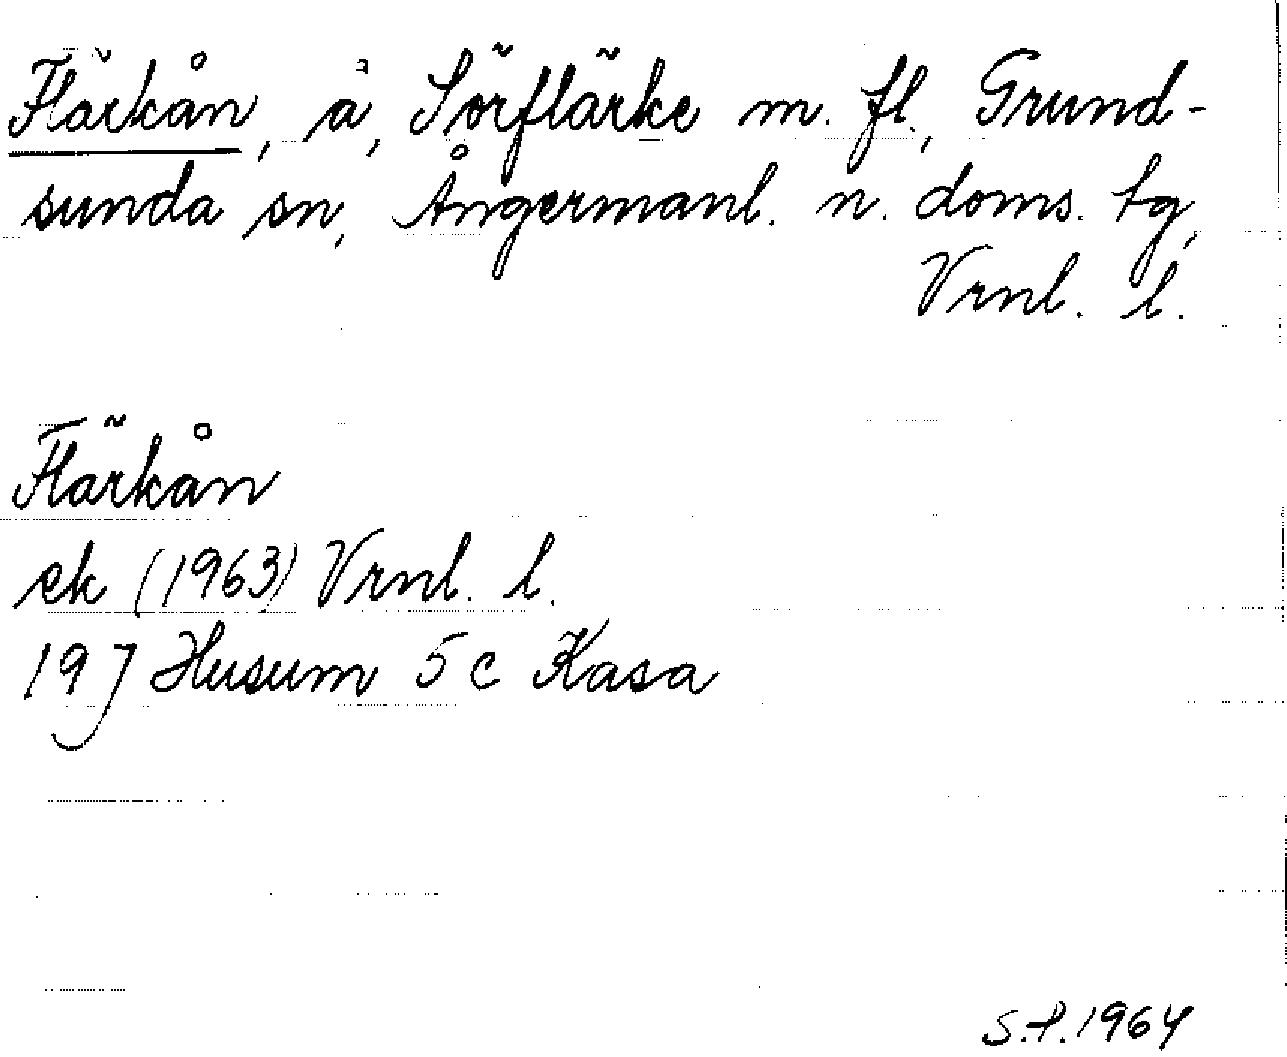 Flärkån, å, Sörflärke m. fl., Grund-
sunda sn, Ångermanl. n. doms. tg,
Vrnl. l.
Flärkån
ek (1963) Vrnl. l.
19 J Husum 5 c Kasa
S.P. 1964